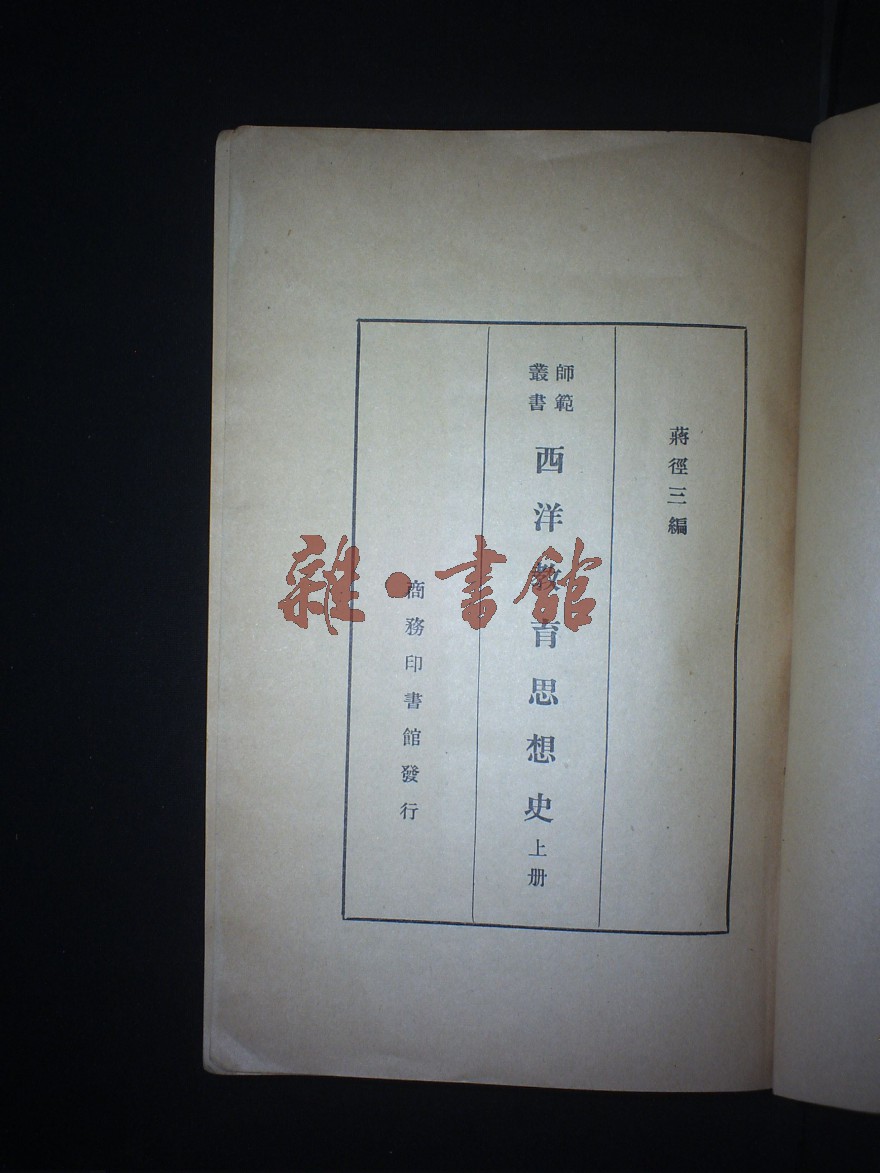 蔣徑三編
師範
叢書
西洋教育思想史上册
商務印書館發行
雜·書館